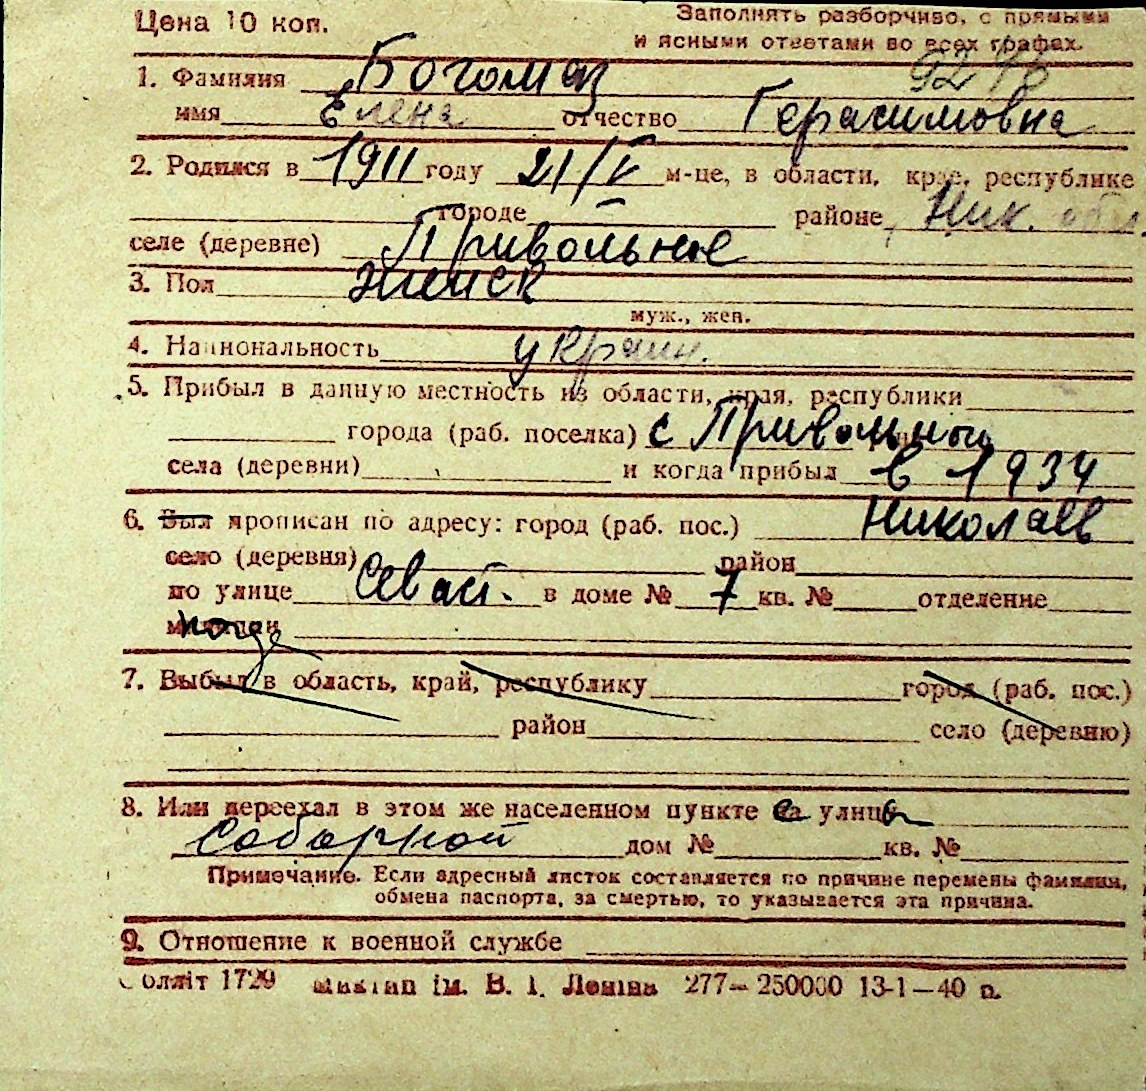 Цена 10 коп.
Заполнять разборчиво, с прямыми
и ясными ответами во всех графах.
1. Фамилия Богомаз
имя Елена отчество Герасимовна
2. Родился в 1911 году 21/V м-це, в области, крае, республике
городе районе, Ник. обл.
селе (деревне) Привольное
3. Пол женск
муж., жен.
4. Национальность украин.
5. Прибыл в данную местность из области, края, республики
города (раб. поселка) с Привольного
села (деревни) и когда прибыл в 1934
6. Был прописан по адресу: город (раб. пос.) Николаев
село (деревня) район
по улице Севаст. в доме № 7 кв. № отделение
милиции
7. Выбыл в область, край, республику город (раб. пос.)
район село (деревню)
8. Или переехал в этом же населенном пункте са улицы
Соборной дом № кв. №
Примечание. Если адресный листок составляется по причине перемены фамилии,
обмена паспорта, за смертью, то указывается эта причина.
9. Отношение к военной службе
Облліт 1729 ім. В. І. Леніна 277— 250000 13-1—40 р.